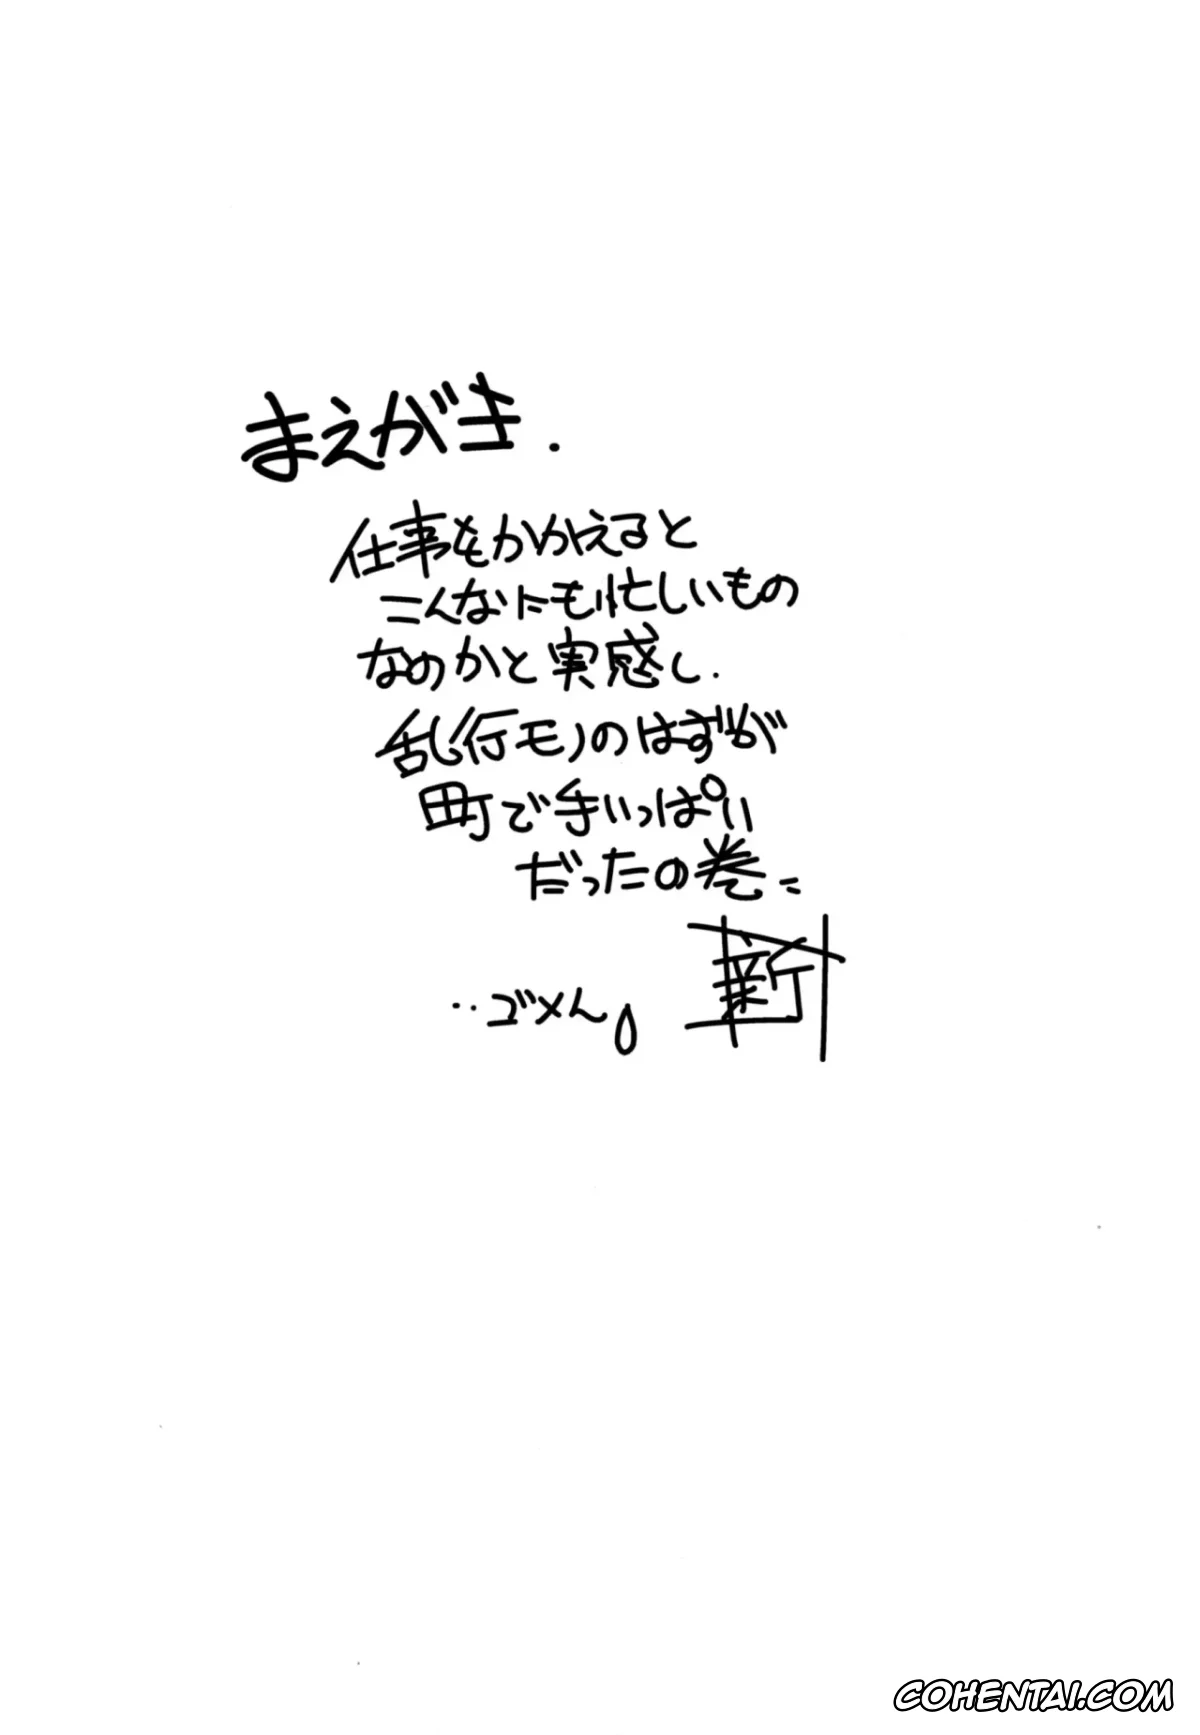 まえがき.
仕事をかかえると
こんなにも忙しいもの
なのかと実感し.
乱行モノのはずが
町で手いっぱい
だったの巻
‥ゴメん。
新
COHENTAI.COM